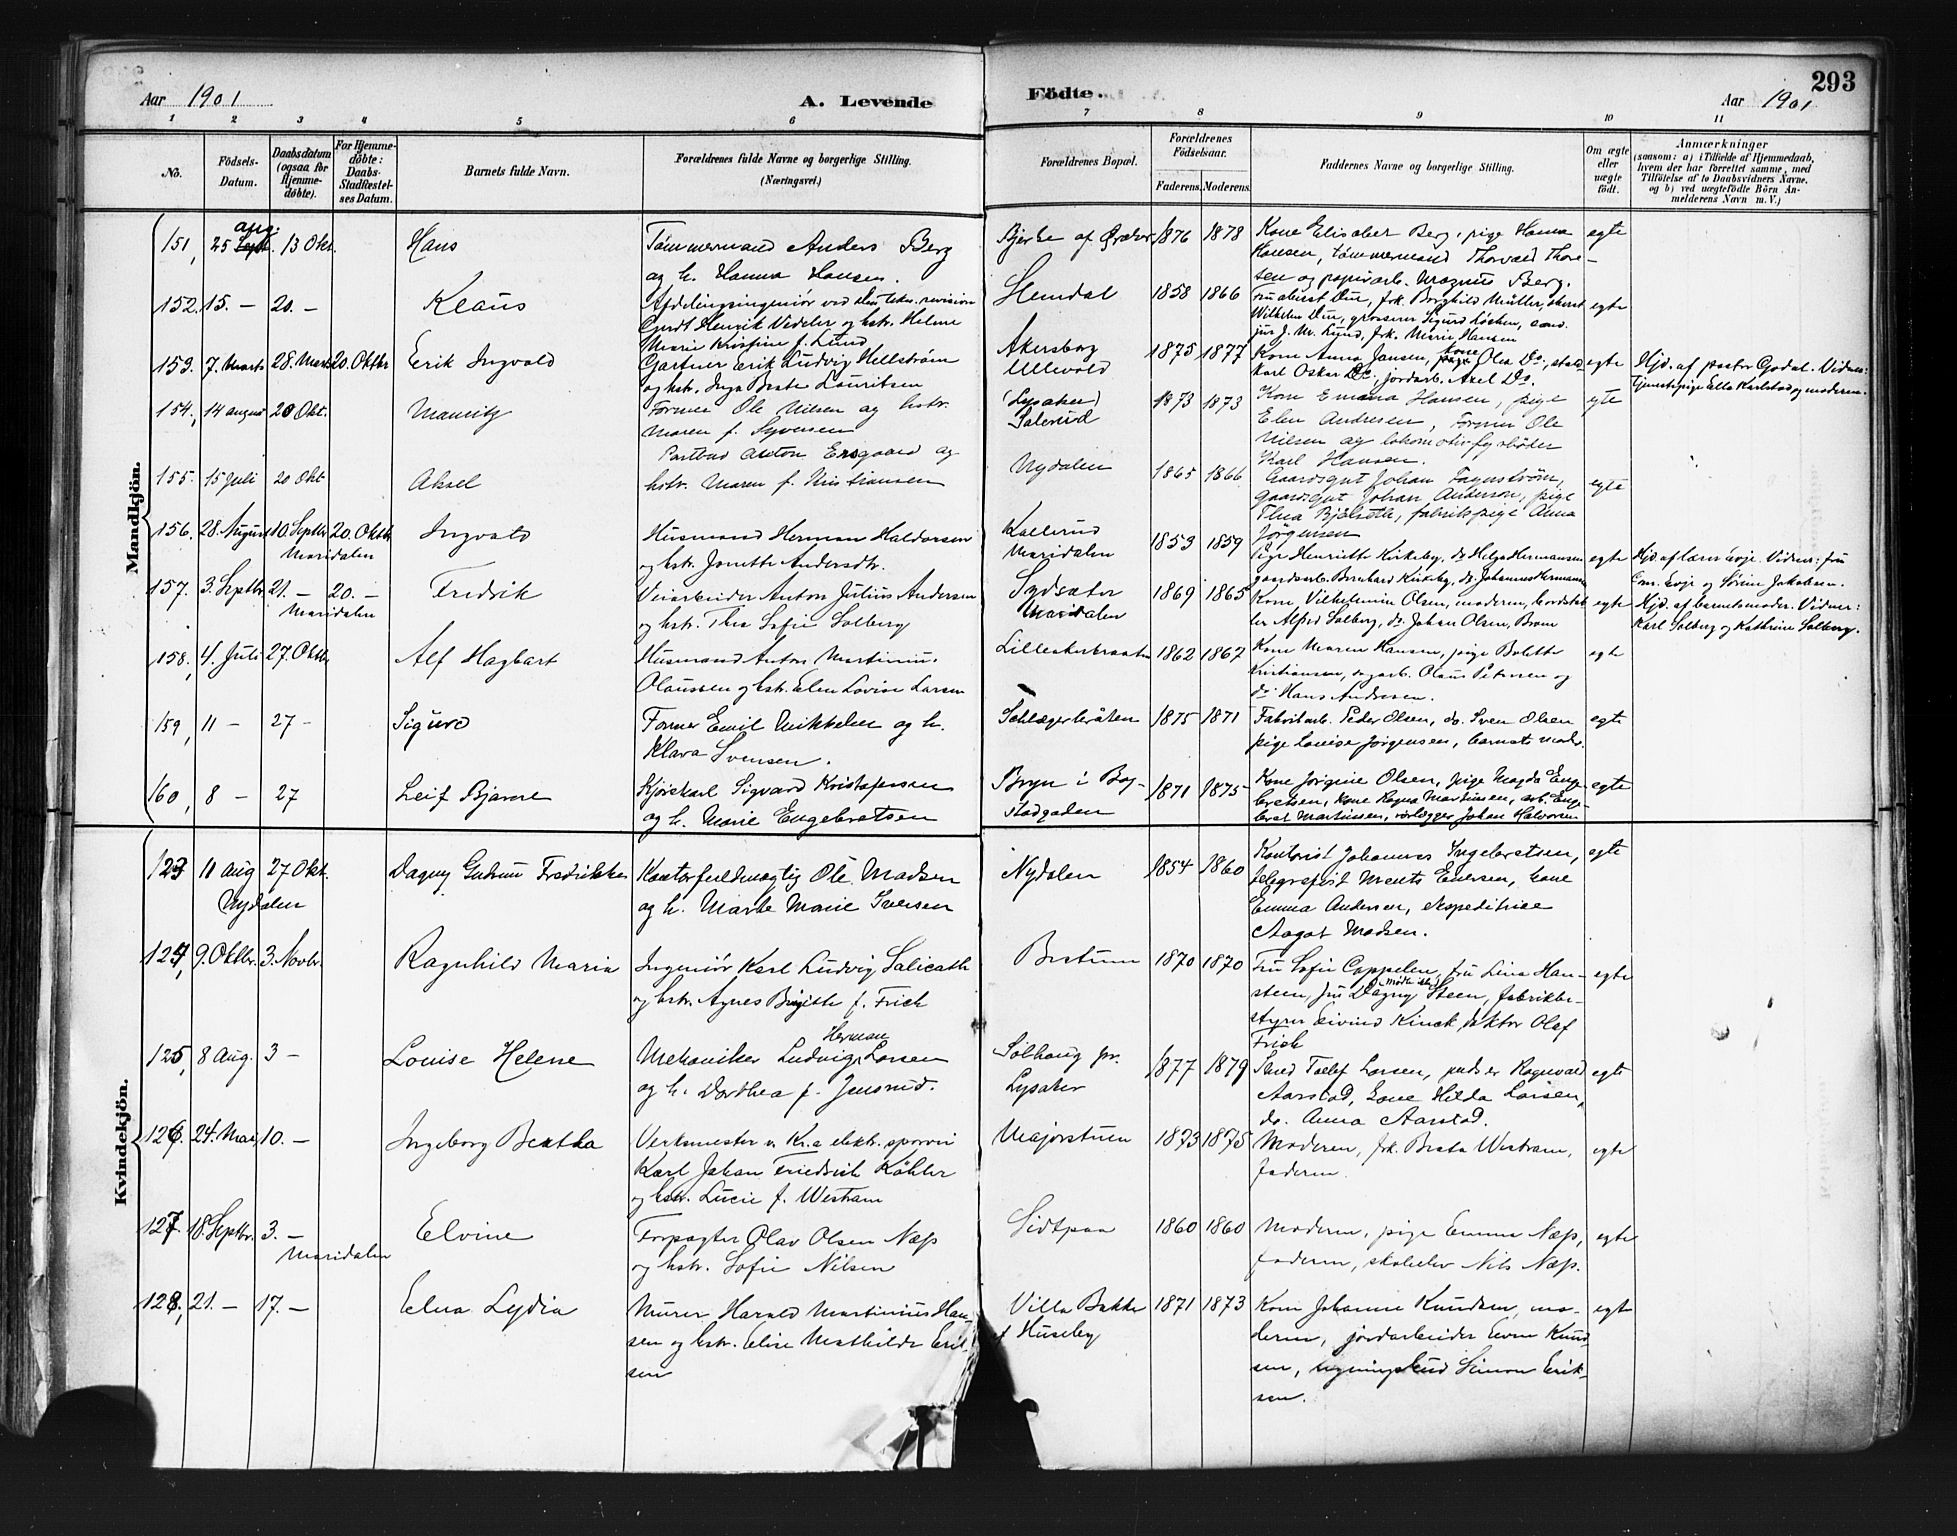 293
Aar 1901
A. Levende Födte.
Aar 1901
1 2 3 4 5 6 7 8 9 10 11
No.
Födsels-
Datum.
Daabsdatum
(ogsaa for
Hjemme-
döbte).
For Hjemme-
döbte:
Daabs-
Stadfæstel-
ses Datum.
Barnets fulde Navn.
Forældrenes fulde Navne og borgerlige Stilling.
(Næringsvei.)
Forældrenes Bopæl.
Forældrenes
Födselsaar.
Faderens. Moderens.
Faddernes Navne og borgerlige Stilling.
Om ægte
eller
uægte
født.
Anmærkninger
(saasom: a) i Tilfælde af Hjemmedaab,
hvem der har forrettet samme, med
Tilföielse af to Daabsvidners Navne,
og b) ved uægtefödte Börn An-
melderens Navn m. V.)
Mandkjön.
151, 25 aug. 13 Okt. Hans
Tømmermand Anders Berg
og h. Hanna Hansen.
Bjerke af 1876 1878
Kone Elisabet Berg, pige Hanna
Hansen, tømmermand Thorvald Thore-
sen og papirarb. Magnus Berg.
egte
152. 15. – 20. – Klaus
Afdelingsingeniør ved den tekn. revision
Gerdt Henrik Vedeler og hstr. Helene
Marie Kristine f. Lund
Hemdal 1858 1866
Due, frk. Borghild Müller,
Wilhelm Due, grosserer Sigurd Løchen, cand.
jur J. M. Lund, frk. Marie Hansen
egte
153. 7. Marts 28. Marts 20. Oktbr Erik Ingvald
Gartner Erik Ludvig Hellstrøm
og hstr. Inga Beate Lauritsen
Akersborg
Ullevold
1875 1877
Kone Anna Jansen, kone Olea Do.,
Karl Oskar Do. jordarb. Axel Do.
egte
Hjd. af pastor Gjødal. Vidner:
Tjenestepige Ella Karlstad og moderen.
154, 14 august 20 Okt. Mauritz
Former Ole Nilsen og hstr.
Maren f. Syversen
(Lysaker)
1873 1873
Kone Emma Hansen, pige
Elen Andresen, Former Ole
Nilsen og lokomotivfyrbøder
Karl Hansen.
egte
155. 15 Juli 20 Okt. Aksel
Postbud Anton Ersgaard og
hstr. Maren f. Kristiansen
Nydalen 1865 1866
Gaardsgut Johan Fagerstrøm,
gaardsgut Johan Anderson, pige
Thea Bjølseth, fabrikspige Anna
Jørgensen
egte
156. 28. August 10. Septbr 20. Oktbr Ingvald
Maridalen
Husmand Herman Haldorsen
og hstr. Jonette Andersdtr.
Kallerud
Maridalen
1853 1859
Pige Henriette Kirkeby, do Helga Hermansen
gaardsarb. Bernhard Kirkeby, do Johannes Hermansen
egte
Hjd. af lærer Evje. Vidner: fru
Evje og Sørine Jakobsen.
157. 3. Septbr. 21. – 20. – Fredrik
Maridalen
Veiarbeider Anton Julius Andersen
og hstr. Thea Sofie Solberg
Sydsæter
Maridalen
1869 1865
Kone Vilhelmine Olsen, moderen,
Alfred Solberg, do Johan Olsen,
egte
Hjd. af barnets moder. Vidner:
Karl Solberg og Kathrine Solberg.
158, 4. Juli 27. Oktbr Alf Hagbart
Husmand Anton Martinius
Olaussen og hstr. Elen Lovise Larsen
Lilleakerbraaten 1862 1867
Kone Maren Hansen, pige Bolette
Kristiansen, dagarb. Olaus Petersen og
do Hans Andresen.
egte
159, 11 – 27 – Sigurd
Former Emil Mikkelsen og h.
Klara Svensen.
Schlægerbråten 1875 1871
Fabrikarb. Peder Olsen, do. Sven Olsen
pige Louise Jørgensen, barnets moder.
egte
160, 8 – 27 Leif Bjarne
Kjørekarl Sigvard Kristofersen
og h. Marie Engebretsen
Bryn i Bog-
stadgaden
1871 1875
Kone Jørgine Olsen, pige Magda Enge-
bretsen, kone Ragna Martinsen, arb. Enge-
bret Martinsen, rørlægger Johan Halvorsen
egte
Kvindekjön.
123 11 aug 27 Okt. Dagny Gudrun Fredrikke
Nydalen
Kontorfuldmægtig Ole Madsen
og h. Marte Marie Iversen
Nydalen 1854 1860
Kontorist Johannes Ingebretsen,
telegrafist Ments Enersen, kone
Emma Andersen, ekspeditrice
Aagot Madsen.
egte
124, 9. Oktbr. 3. Novbr. Ragnhild Maria
Ingeniør Karl Ludvig Salicath
og hstr. Agnes Birgitte f. Frich
Bestum 1870 1870
Fru Sofie Cappelen, fru Lina Han-
steen, fru Dagny Steen, fabrikbe-
styrer Eivind Kinck, doktor Olaf
Frich
egte
125, 8 Aug. 3 – Louise Helene
Mekaniker Ludvig Herman Larsen
og h. Dorthea f. Jensrud.
Solhaug pr.
Lysaker
1877 1879
Smed Tollef Larsen, pudser Ragnvald
Aarstad, kone Hilda Larsen,
do. Anna Aarstad.
egte
126. 24. Mai 10. – Ingeborg Beatha
Verksmester v. Kr.a elektr. sporvei
Karl Johan Friedrich Köhler
og hstr. Lucie f. Westram
Majorstuen 1873 1875
Moderen, frk. Beata Westram,
faderen.
egte
127. 18. Septbr. 3. – Elvine
Maridalen
Forpagter Olav Olsen Næs
og hstr. Sofie Nilsen
Sidtpaa 1860 1860
Moderen, pige Emma Næs,
faderen, skoleelev Nils Næs.
egte
128, 21. – 17. – Elna Lydia
Murer Harald Martinius Han-
sen og hstr. Elise Mathilde Erik-
sen
Villa Bakke
f Huseby
1871 1873
Kone Johanne Knudsen, mo-
deren, jordarbeider Even Knud-
sen, Simon Erik-
sen.
egte